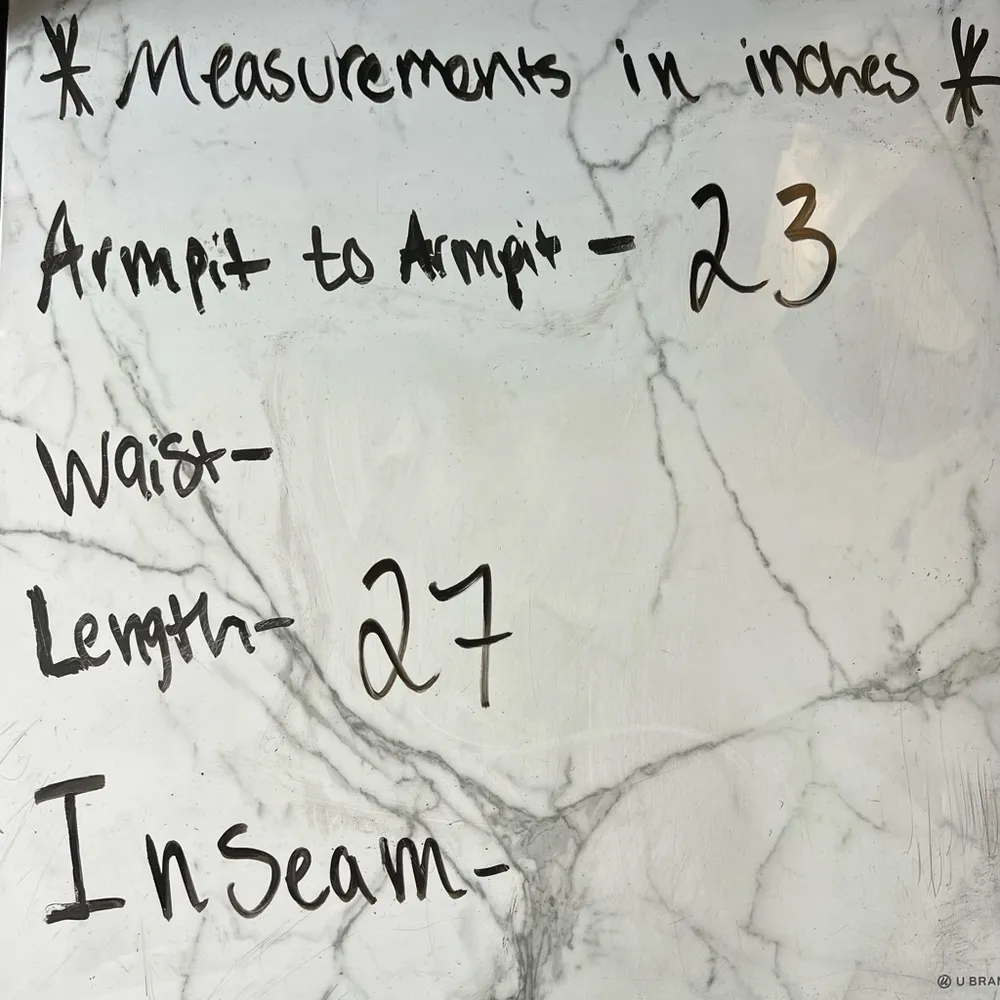 * Measurements in inches *
Armpit to Armpit - 23
Waist-
Length- 27
Inseam-
U BRAN